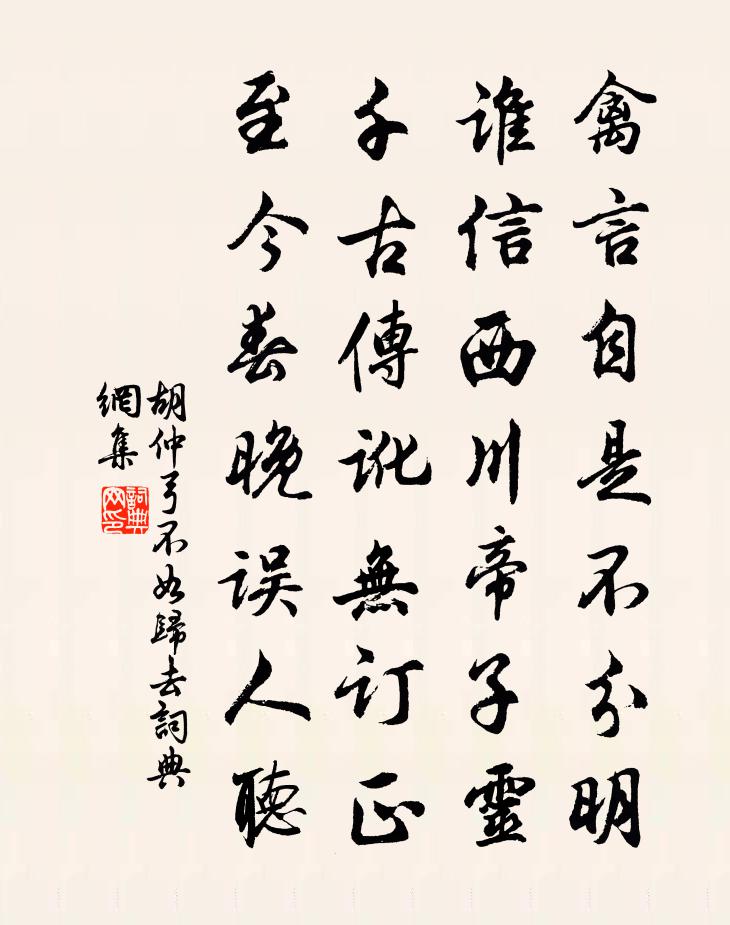 禽言自是不分明
誰信西川帝子靈
千古傳訛無訂正
至今春晚误人聽
胡仲弓不如歸去詞典
網集
詞典
网印